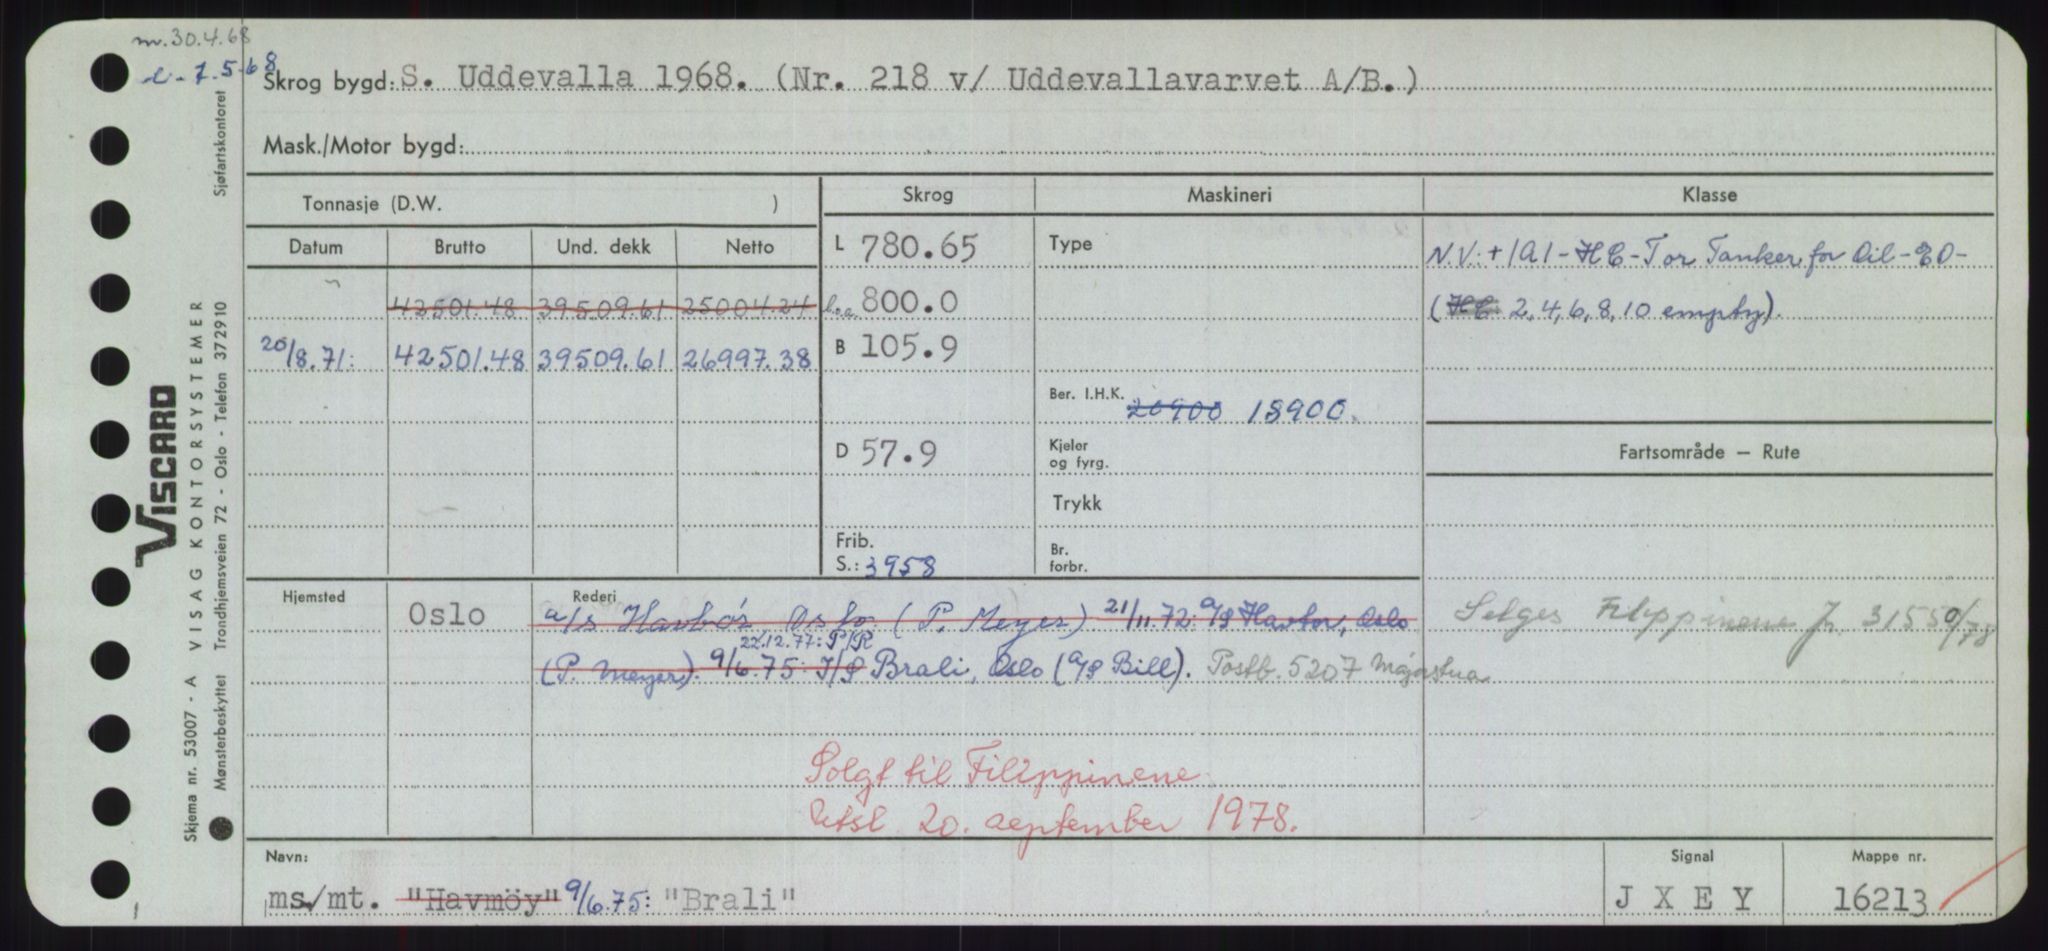 m. 30.4.68
d - 7.5.68
Skrog bygd: S. Uddevalla 1968. (Nr. 218 v/ Uddevallavarvet A/B.)
Mask./Motor bygd:
Tonnasje (D.W. )
Skrog Maskineri Klasse
Datum Brutto Und. dekk Netto
L 780.65 Type
N.V. + 1A1 - HC - T or Tanker for Oil - EO -
42501.48 39509.61 25004.24
l.o.a. 800.0
(HC 2, 4, 6, 8, 10 empty).
20/8.71: 42501.48 39509.61 26997.38
B 105.9
Ber. I.H.K. 20900 18900.
D 57.9
Kjeler og fyrg.
Fartsområde — Rute
Trykk
Frib. S.: 3958
Br. forbr.
Hjemsted Oslo
Rederi
a/s Havbör Oslo (P. Meyer) 21/11.72: A/S Havtor, Oslo
22.12.77: P/R
(P. Meyer). 9/6.75: I/S Brali, Oslo (A/S Bill). Postb. 5207 Majorstua
Selges Filippinene Jr. 31550/78
Solgt til Filippinene
Utsl. 20. september 1978.
Navn: Signal Mappe nr.
ms/mt. "Havmöy" 9/6.75: "Brali" J X E Y 16213
VISCARD
VISAG KONTORSYSTEMER
Skjema nr. 53007 - A
Mønsterbeskyttet Trondhjemsveien 72 - Oslo - Telefon 372910 Sjøfartskontoret